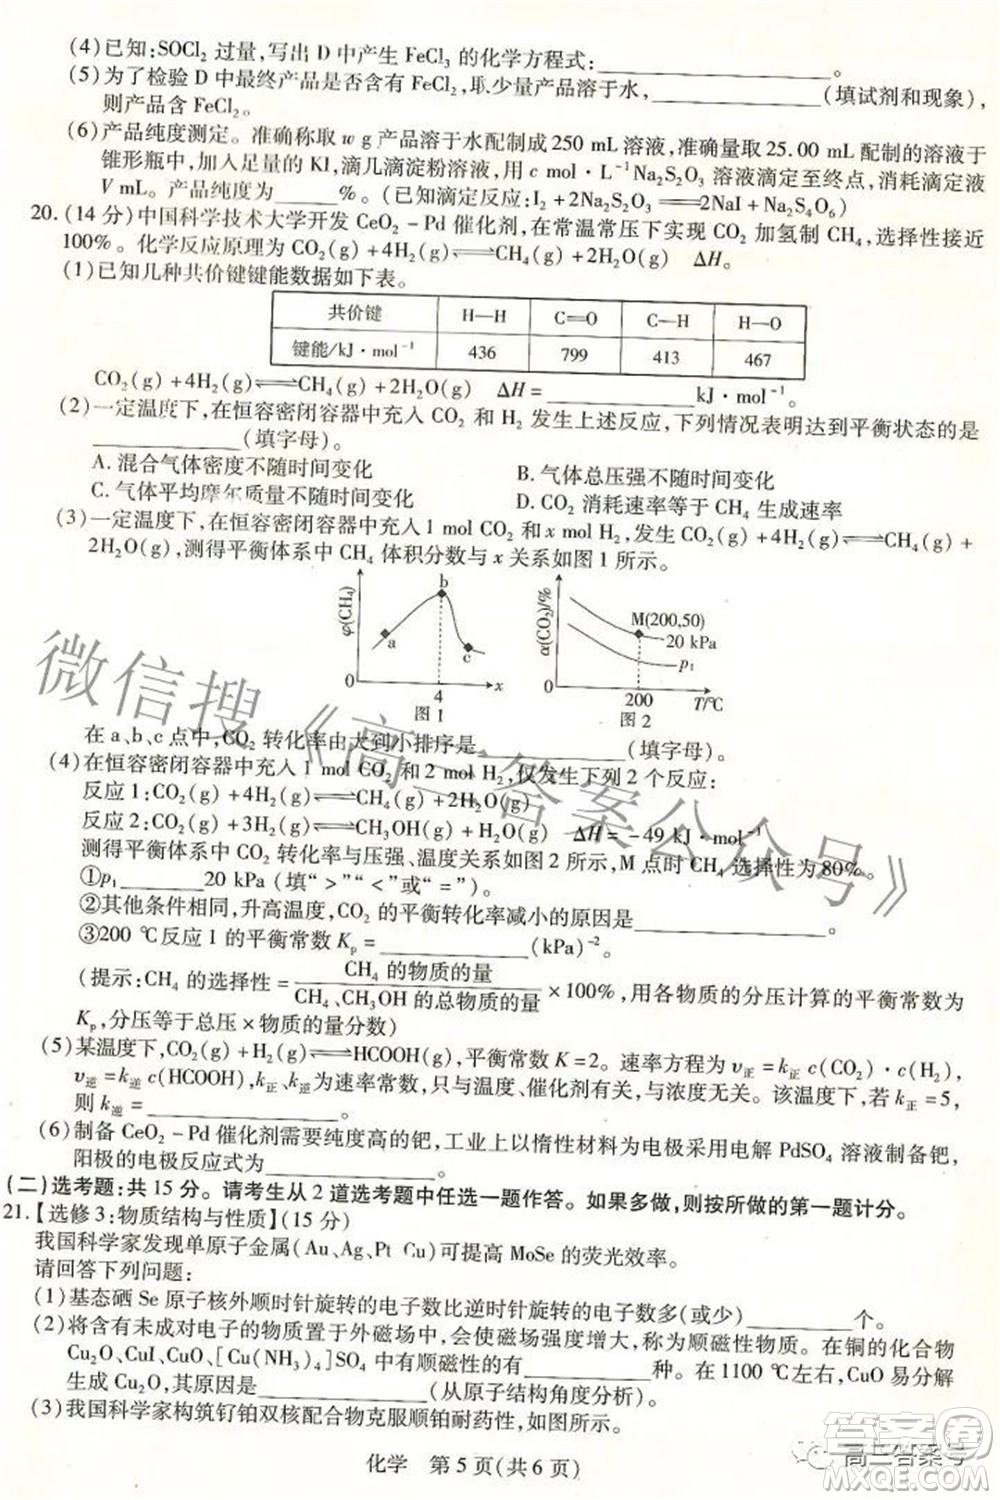 (4)已知:SOCl₂ 过量,写出 D 中产生 FeCl₃ 的化学方程式:____________。
(5)为了检验 D 中最终产品是否含有 FeCl₂,取少量产品溶于水,____________(填试剂和现象),
则产品含 FeCl₂。
(6)产品纯度测定。准确称取 w g 产品溶于水配制成 250 mL 溶液,准确量取 25.00 mL 配制的溶液于
锥形瓶中,加入足量的 KI,滴几滴淀粉溶液,用 c mol·L⁻¹Na₂S₂O₃ 溶液滴定至终点,消耗滴定液
V mL。产品纯度为______%。(已知滴定反应:I₂+2Na₂S₂O₃══2NaI+Na₂S₄O₆)
20.(14 分)中国科学技术大学开发 CeO₂-Pd 催化剂,在常温常压下实现 CO₂ 加氢制 CH₄,选择性接近
100%。化学反应原理为 CO₂(g)+4H₂(g)⇌CH₄(g)+2H₂O(g) ΔH。
(1)已知几种共价键键能数据如下表。
共价键 H—H C=O C—H H—O
键能/kJ·mol⁻¹ 436 799 413 467
CO₂(g)+4H₂(g)⇌CH₄(g)+2H₂O(g) ΔH=____________kJ·mol⁻¹。
(2)一定温度下,在恒容密闭容器中充入 CO₂ 和 H₂ 发生上述反应,下列情况表明达到平衡状态的是
____________(填字母)。
A.混合气体密度不随时间变化 B.气体总压强不随时间变化
C.气体平均摩尔质量不随时间变化 D.CO₂ 消耗速率等于 CH₄ 生成速率
(3)一定温度下,在恒容密闭容器中充入 1 mol CO₂ 和 x mol H₂,发生 CO₂(g)+4H₂(g)⇌CH₄(g)+
2H₂O(g),测得平衡体系中 CH₄ 体积分数与 x 关系如图 1 所示。
φ(CH₄) a b c 0 4 x
图 1
α(CO₂)/% M(200,50) 20 kPa p₁ 0 200 T/℃
图 2
在 a、b、c 点中,CO₂ 转化率由大到小排序是____________(填字母)。
(4)在恒容密闭容器中充入 1 mol CO₂ 和 2 mol H₂,仅发生下列 2 个反应:
反应 1:CO₂(g)+4H₂(g)⇌CH₄(g)+2H₂O(g)
反应 2:CO₂(g)+3H₂(g)⇌CH₃OH(g)+H₂O(g) ΔH=-49 kJ·mol⁻¹
测得平衡体系中 CO₂ 转化率与压强、温度关系如图 2 所示,M 点时 CH₄ 选择性为 80%。
①p₁______20 kPa(填“>”“<”或“=”)。
②其他条件相同,升高温度,CO₂ 的平衡转化率减小的原因是____________。
③200 ℃反应 1 的平衡常数 Kₚ=____________(kPa)⁻²。
(提示:CH₄ 的选择性=CH₄ 的物质的量/CH₄、CH₃OH 的总物质的量×100%,用各物质的分压计算的平衡常数为
Kₚ,分压等于总压×物质的量分数)
(5)某温度下,CO₂(g)+H₂(g)⇌HCOOH(g),平衡常数 K=2。速率方程为 v正=k正c(CO₂)·c(H₂),
v逆=k逆 c(HCOOH),k正、k逆为速率常数,只与温度、催化剂有关,与浓度无关。该温度下,若 k正=5,
则 k逆=____________。
(6)制备 CeO₂-Pd 催化剂需要纯度高的钯,工业上以惰性材料为电极采用电解 PdSO₄ 溶液制备钯,
阳极的电极反应式为____________。
(二)选考题:共 15 分。请考生从 2 道选考题中任选一题作答。如果多做,则按所做的第一题计分。
21.【选修 3:物质结构与性质】(15 分)
我国科学家发现单原子金属(Au、Ag、Pt、Cu)可提高 MoSe 的荧光效率。
请回答下列问题:
(1)基态硒 Se 原子核外顺时针旋转的电子数比逆时针旋转的电子数多(或少)____________个。
(2)将含有未成对电子的物质置于外磁场中,会使磁场强度增大,称为顺磁性物质。在铜的化合物
Cu₂O、CuI、CuO、[Cu(NH₃)₄]SO₄ 中属于顺磁性的有____________种。在 1100 ℃左右,CuO 易分解
生成 Cu₂O,是因为____________(从原子结构角度分析)。
(3)我国科学家构筑钌铂双核配合物克服顺铂耐药性,如图所示。
化学 第 5 页(共 6 页)
微信搜《高三答案公众号》
高三答案号
答案圈
MXQE.COM